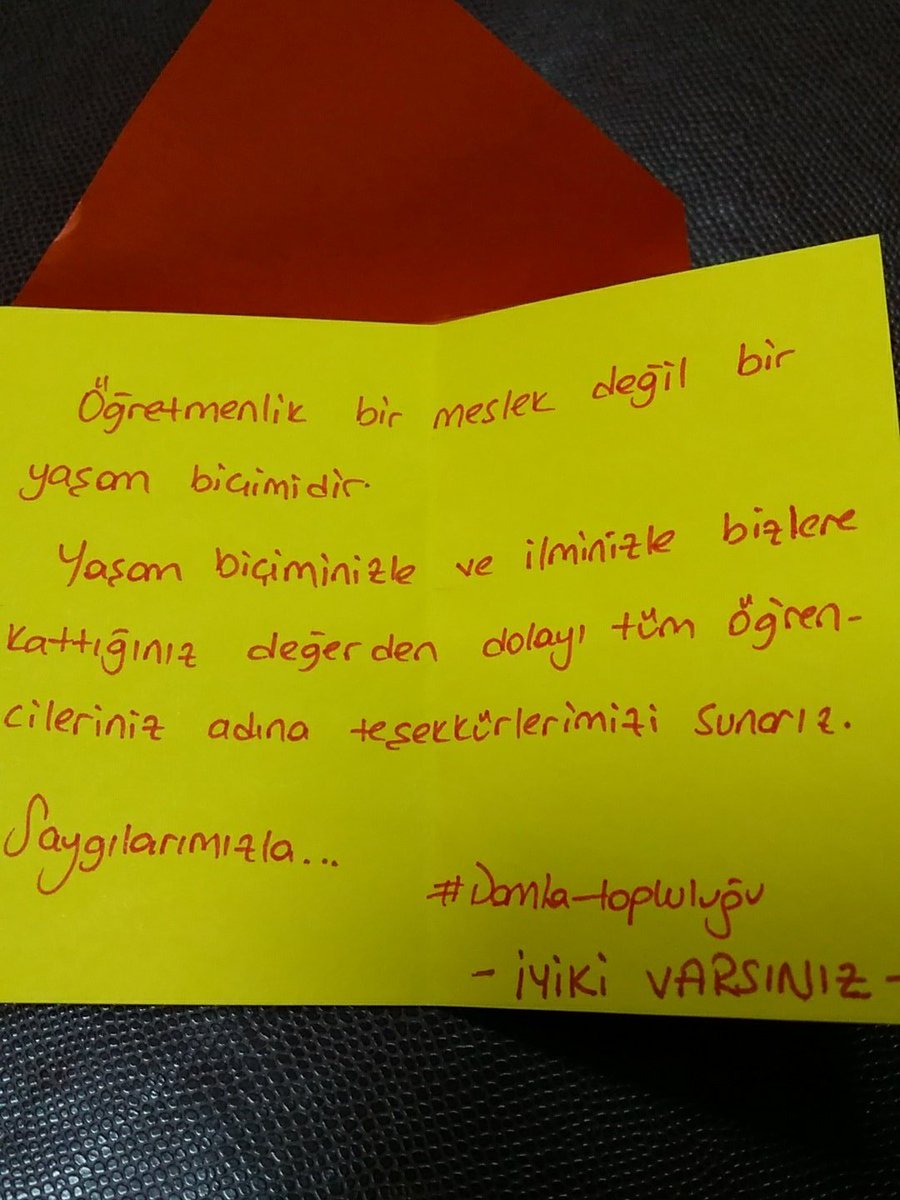 Öğretmenlik bir meslek değil bir
yaşam biçimidir.
Yaşam biçiminizle ve ilminizle bizlere
kattığınız değerden dolayı tüm öğren-
cileriniz adına teşekkürlerimizi sunarız.
Saygılarımızla...
#Damla-topluluğu
- İYİKİ VARSINIZ -